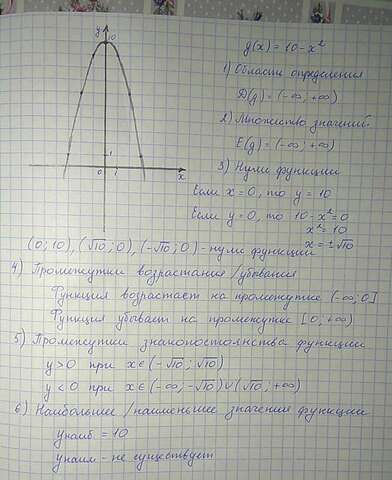 y
10
1
0
1
x
y(x) = 10 - x²
1) Область определения
D(y) = (-∞; +∞)
2) Множество значений
E(y) = (-∞; +∞)
3) Нули функции
Если x = 0, то y = 10
Если y = 0, то 10 - x² = 0
x² = 10
x = ±√10
(0; 10), (√10; 0), (-√10; 0) - нули функции
4) Промежутки возрастания/убывания
Функция возрастает на промежутке (-∞; 0]
Функция убывает на промежутке [0; +∞)
5) Промежутки знакопостоянства функции
y > 0 при x ∈ (-√10; √10)
y < 0 при x ∈ (-∞; -√10) ∪ (√10; +∞)
6) Наибольшее/наименьшее значения функции
yнаиб = 10
yнаим - не существует